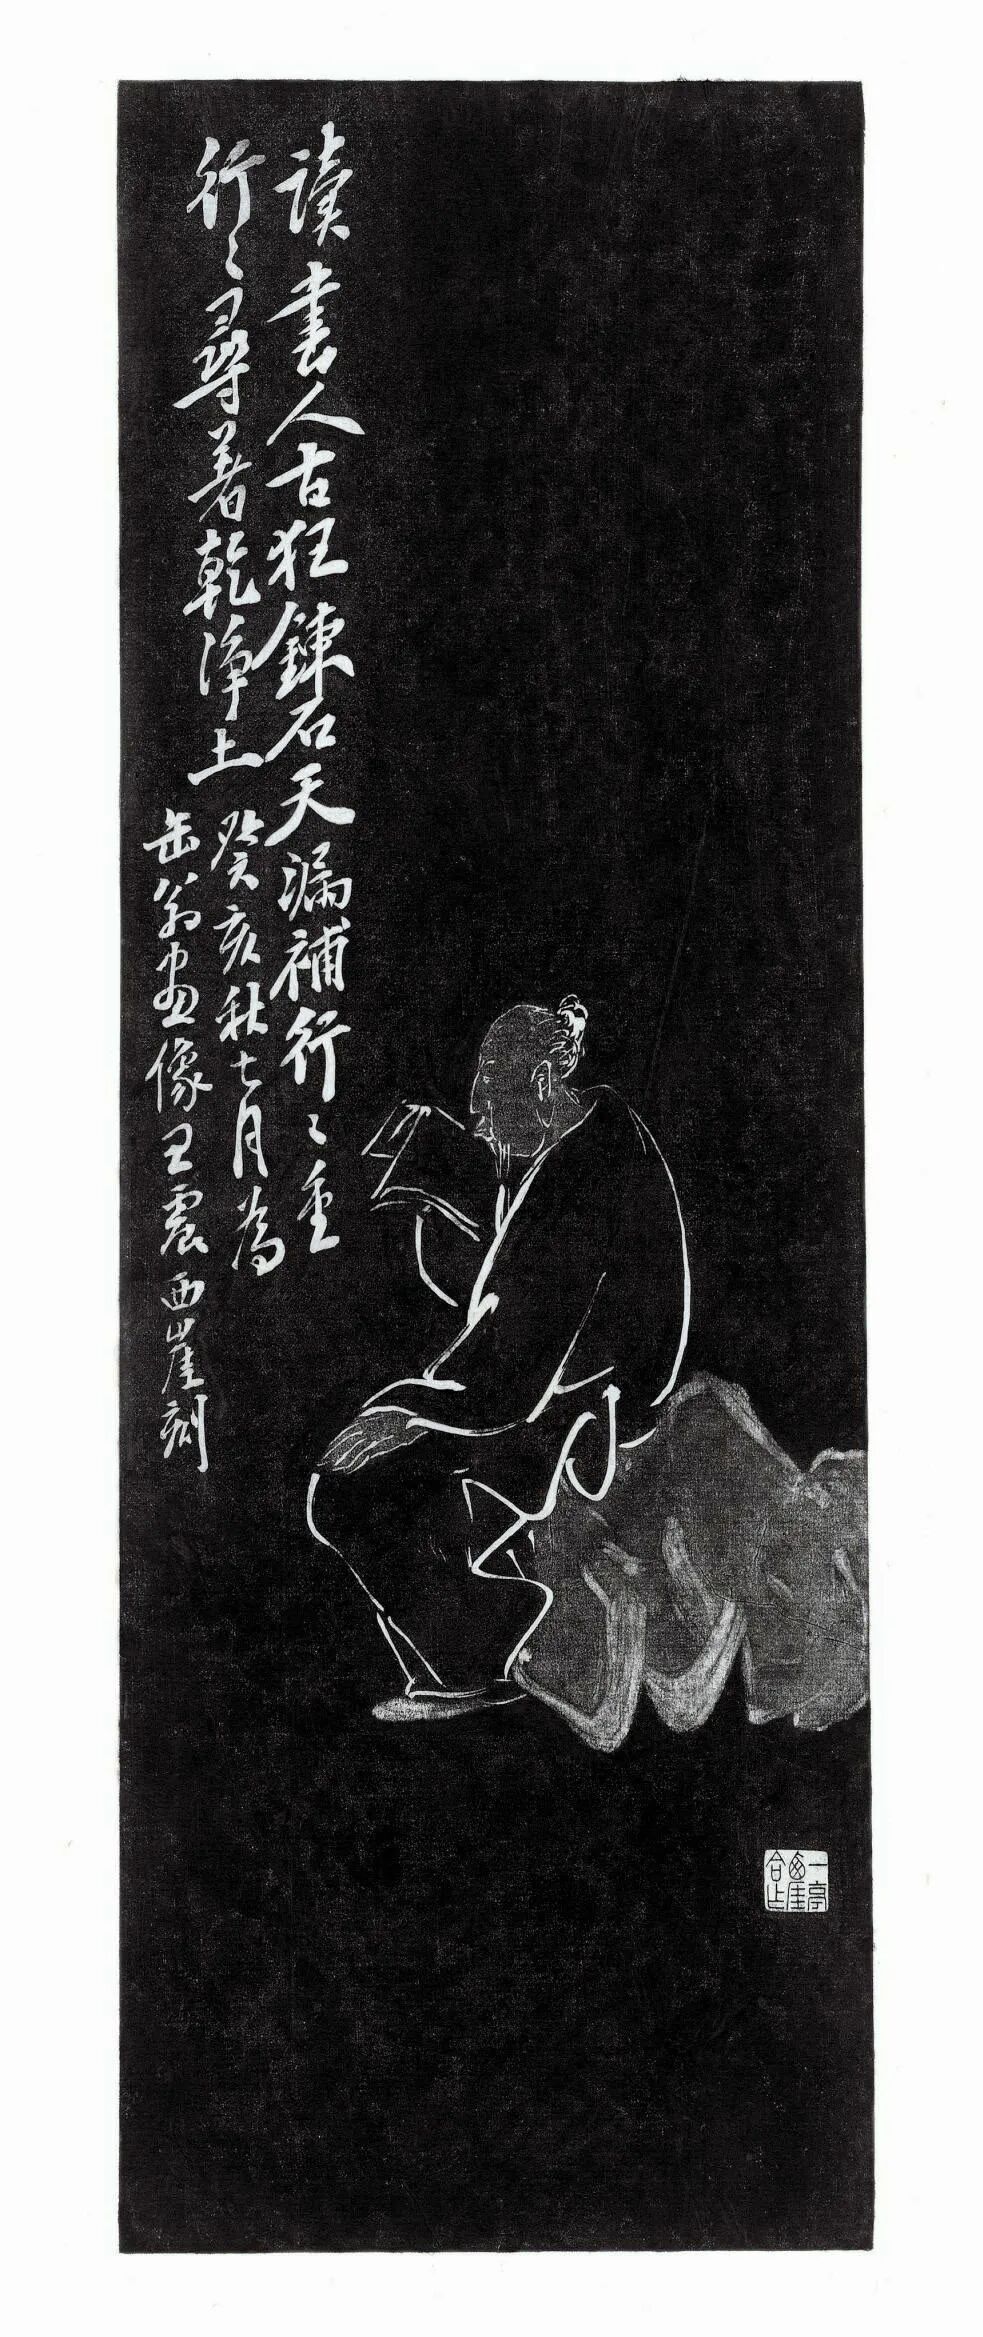 读書人古狂鍊石天漏補行〻重
行〻尋着乾淨土
癸亥秋七月為
缶翁画像王震西崖刻
一亭
西厓
合作